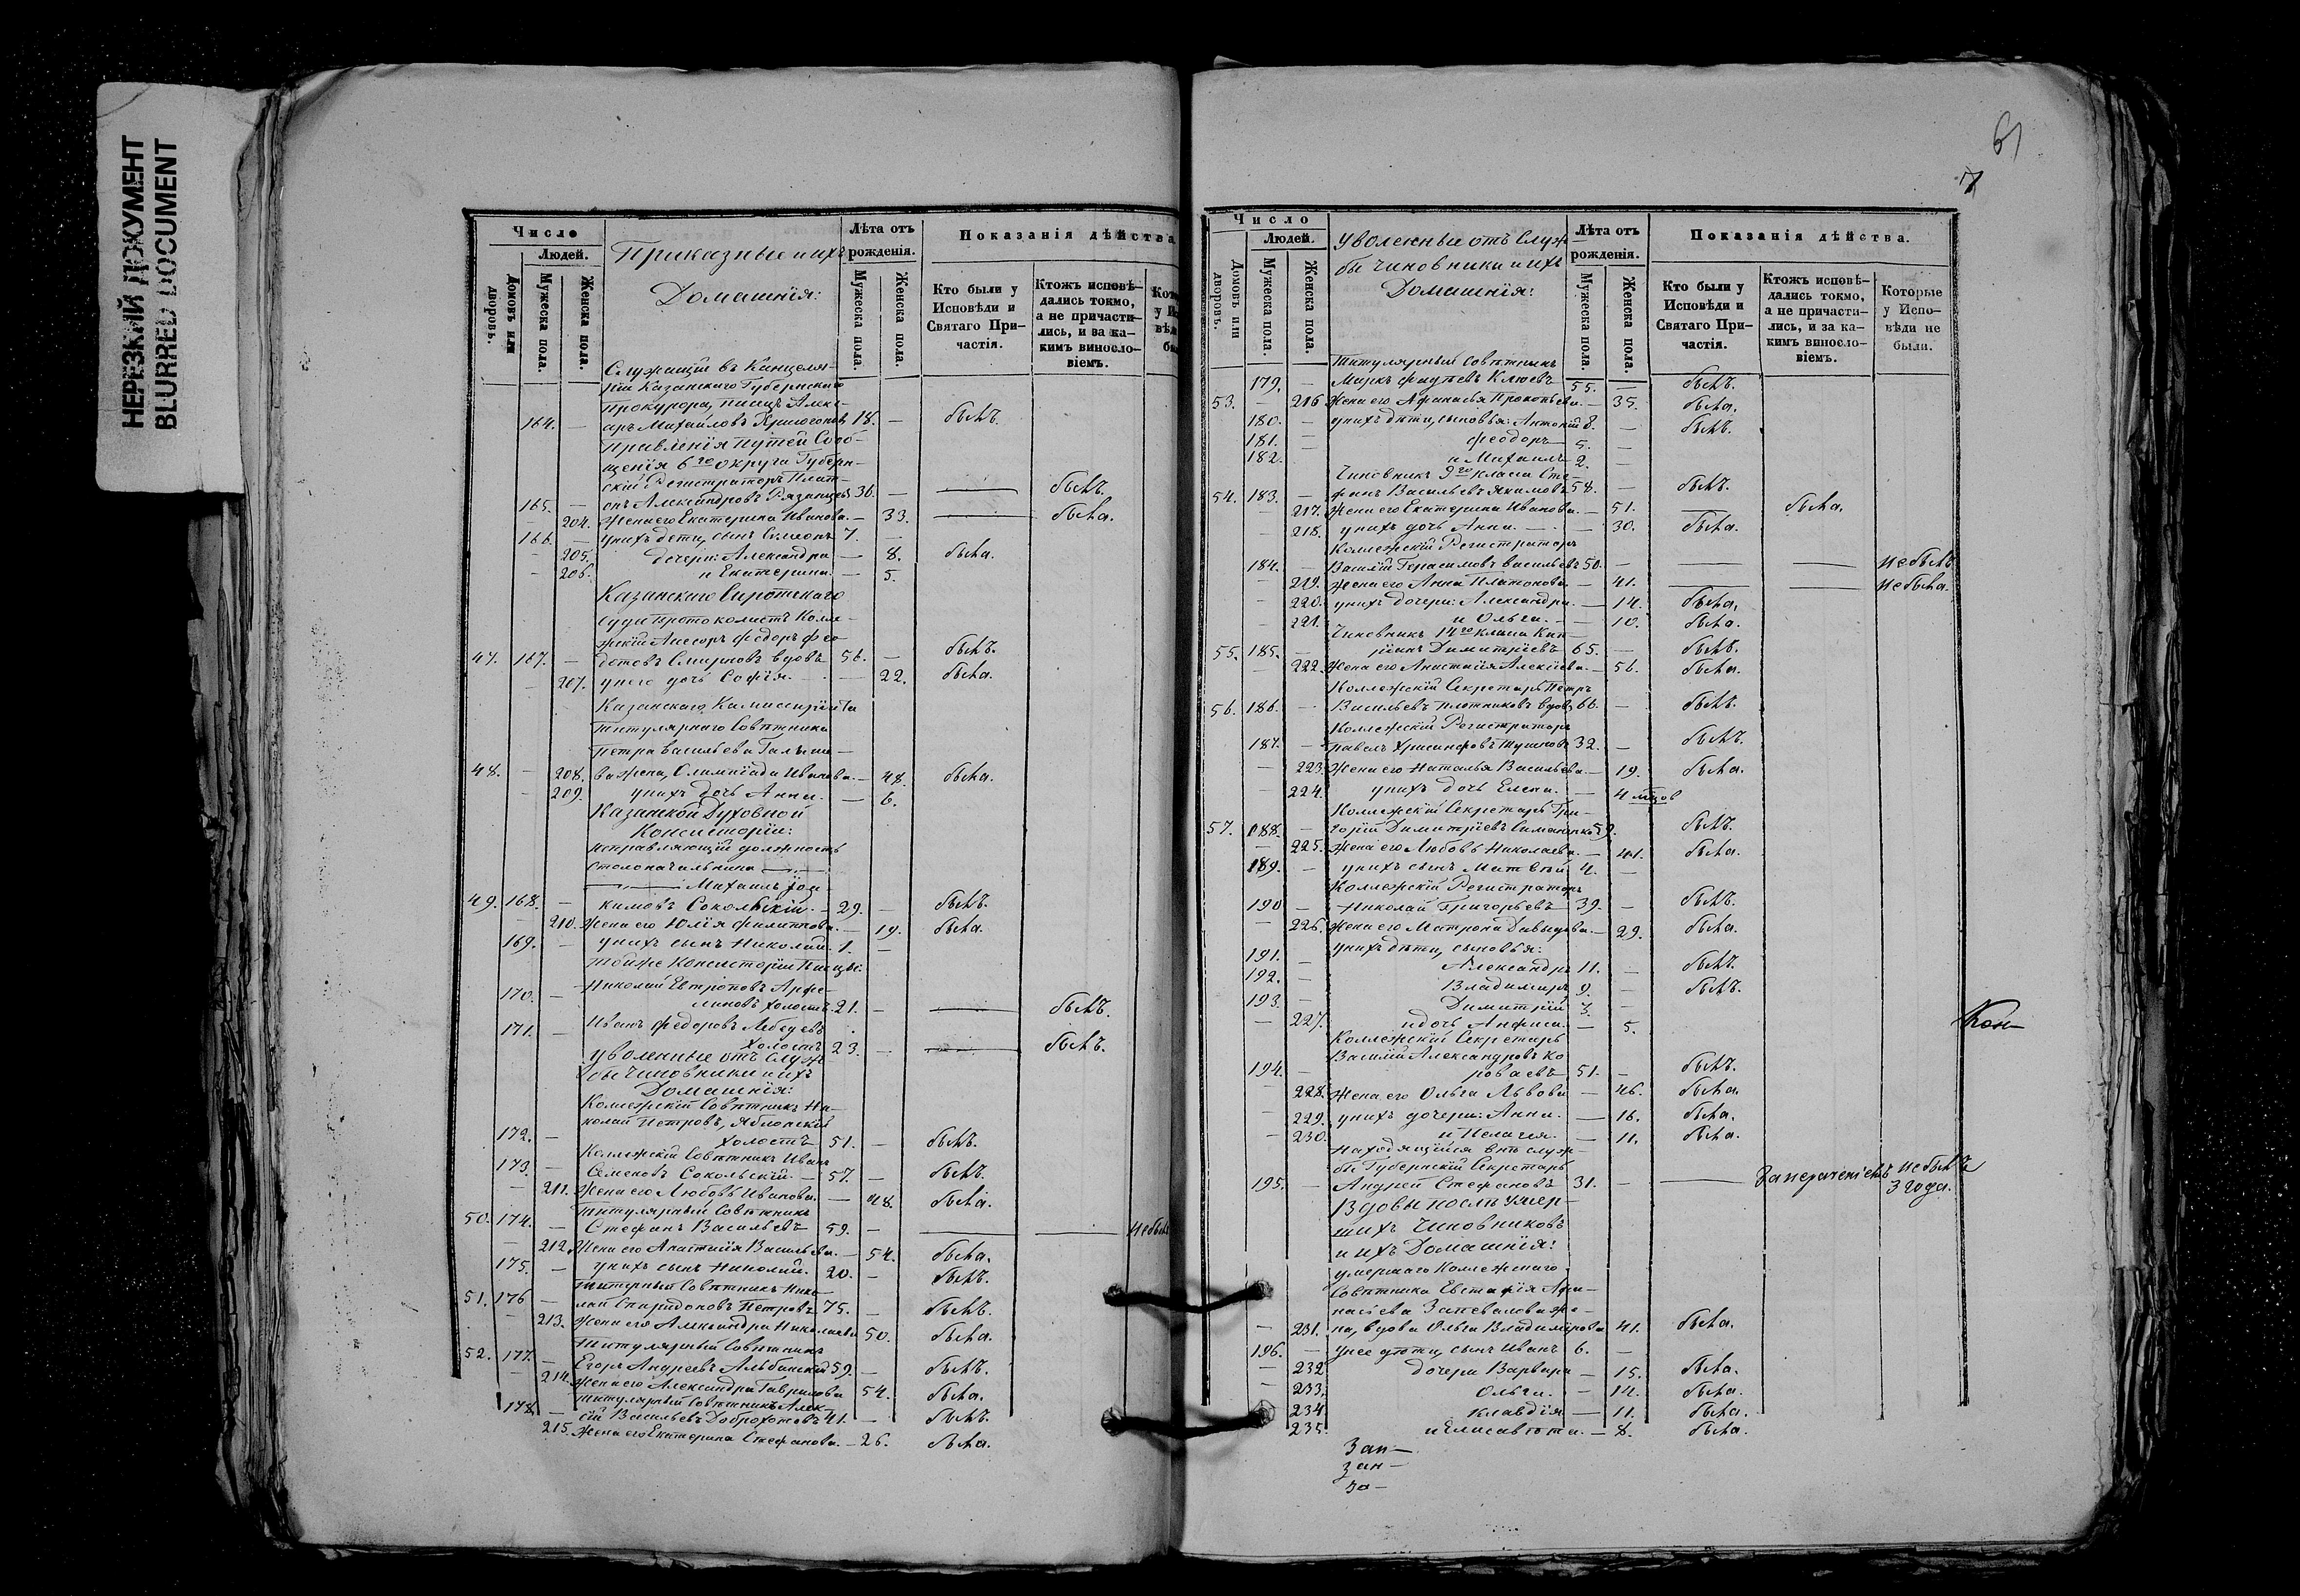 НЕРЕЗКИЙ ДОКУМЕНТ
BLURRED DOCUMENT
Число
Людей.
Домовъ или дворовъ.
Мужеска пола.
Женска пола.
Приказные и ихъ
Домашнія:
Лѣта отъ рожденія.
Мужеска пола.
Женска пола.
Показанія дѣйства
Кто были у Исповѣди и Святаго Причастія.
Ктожъ исповѣдались токмо, а не причастились, и за какимъ винословіемъ.
Служащій въ Канцеля-
ріи Казанскаго Губернскаго
прокурора, писецъ Алекс-
164. — андръ Михайловъ 18. — былъ.
Правленія путей Сооб-
щенія 6го округа Губерн-
скій Регистраторъ Плат-
165. — онъ Александровъ Рязанцевъ 36. — — былъ.
— 204. Жена его Екатерина Иванова. — 33. — была.
166. — у нихъ дети, сынъ Симеонъ 7. —
— 205. дочери: Александра — 8. была.
— 206. и Екатерина. — 5.
Казанскаго Сиротскаго
Суда протоколистъ Колле-
жскій Ассесоръ Федоръ Фео-
47. 167. — дотовъ Смирновъ вдовъ 56. — былъ.
— 207. у него дочь Софія. — 22. была.
Казанскаго Комиссаріата
титулярнаго Совѣтника
Петра Васильева Галыше-
48. — 208. ва жена, Олимпіада Иванова. — 48. была.
— 209. у нихъ дочь Анна. — 6.
Казанской Духовной
Консисторіи:
исправляющій должность
столоначальника
Михаилъ Іоа-
49. 168. — кимовъ Сокольскій. — 29. — былъ.
— 210. Жена его Юлія Филиппова. — 19. была.
169. — у нихъ сынъ Николай. 1. —
тойже Консисторіи Писцы:
Николай Евтроповъ Арфе-
170. — линовъ холостъ. 21. — — былъ.
171. — Иванъ Федоровъ Лебедевъ
холостъ 23. — — былъ.
уволенные отъ служ-
бы чиновники и ихъ
Домашнія:
Коллежскій Совѣтникъ Ни-
колай Петровъ, Яблонскій
172. — холостъ 51. — былъ.
Коллежскій Совѣтникъ Иванъ
173. — Семеновъ Сокольскій. — 57. — былъ.
— 211. Жена его Любовь Иванова. — 48. была.
титулярный Совѣтникъ
50. 174. — Стефанъ Васильевъ 59. — — — небылъ
— 212. Жена его Анастасія Васильева. — 54. была.
175. — у нихъ сынъ Николай. 20. — былъ.
титулярный Совѣтникъ Нико-
51. 176 — лай Спиридоновъ Петровъ 75. — былъ.
— 213. Жена его Александра Николаева 50. была.
титулярный Совѣтникъ
52. 177. — Егоръ Андреевъ Альбанскій 59. — былъ.
— 214. Жена его Александра Гаврилова 54. была.
титулярный Совѣтникъ Алек-
178. — сій Васильевъ Доброхотовъ 41. — былъ.
215. Жена его Екатерина Стефанова. — 26. была.
61
7
Число
Людей.
Домовъ или дворовъ.
Мужеска пола.
Женска пола.
уволенные отъ Служ-
бы чиновники и ихъ
Домашнія:
Лѣта отъ рожденія.
Мужеска пола.
Женска пола.
Показанія дѣйства.
Кто были у Исповѣди и Святаго Причастія.
Ктожъ исповѣдались токмо, а не причастились, и за какимъ винословіемъ.
Которые у Исповѣди не были.
титулярный Совѣтникъ
179. — Маркъ Фадѣевъ Клюевъ 55. — былъ.
53. — 216 Жена его Афанасья Прокопьева. — 35. была.
180. — у нихъ дѣти, сыновья: Антоній 8. — былъ.
181. — Феодоръ 5. —
182. и Михаилъ 2. —
Чиновникъ 9го класса Сте-
54. 183. — фанъ Васильевъ Якимовъ 58. — былъ.
— 217. Жена его Екатерина Иванова. — 51. — была.
218. у нихъ дочь Анна. — 30. была.
Коллежскій Регистраторъ
184. — Василій Герасимовъ Васильевъ 50. — — — небылъ
— 219. Жена его Анна Платонова. — 41. — — небыла.
— 220. у нихъ дочери: Александра. — 14. была.
— 221. и Ольга. — 10. была.
Чиновникъ 14го класса Кип-
55. 185. — ріанъ Димитріевъ 65. — былъ.
— 222. Жена его Анастасія Алексіева. — 56. была.
Коллежскій Секретарь Петръ
56. 186. — Васильевъ Плотниковъ вдовъ 66. — былъ.
Коллежскій Регистраторъ
187. — Павелъ Хрисанфовъ 32. — былъ.
— 223 Жена его Наталья Васильева — 19. была.
— 224. у нихъ дочь Елена. — 4 мѣсяцов
Коллежскій Секретарь Гри-
57. 188. — горій Димитріевъ 59. былъ.
— 225. Жена его Любовь Николаева. — 41. была.
189. — у нихъ сынъ Матвѣй 4. —
Коллежскій Регистраторъ
190 — Николай Григорьевъ 39. — былъ.
— 226. Жена его Матрона Давыдова. — 29. была.
у нихъ дѣти, сыновья:
191. — Александръ 11. — былъ.
192. — Владимиръ 9. — былъ.
193. — Димитрій 3. —
— 227. и дочь Анфиса. — 5.
Коллежскій Секретарь
Василій Александровъ Ко-
194. — роваевъ 51. — былъ.
— 228. Жена его Ольга Львова — 46. была.
— 229. у нихъ дочери: Анна. — 16. была.
— 230. и Пелагія. — 11. была.
Находящійся внѣ служ-
бы Губернскій Секретарь
195. — Андрей Стефановъ 31. — — За нераченіемъ небылъ
3 года.
Вдовы послѣ умер-
шихъ Чиновниковъ
и ихъ Домашнія:
умершаго Коллежскаго
Совѣтника Евстафія Афа-
насьева Запевалова же-
— 231. на, вдова Ольга Владимірова 41. была.
196. — у нее дѣти, сынъ Иванъ 6. —
— 232 дочери Варвара — 15. была.
— 233. Ольга. — 14. была.
234. Клавдія — 11. была.
235. и Елисавета. — 8. была.
Кон-
Зан-
Зан-
За-